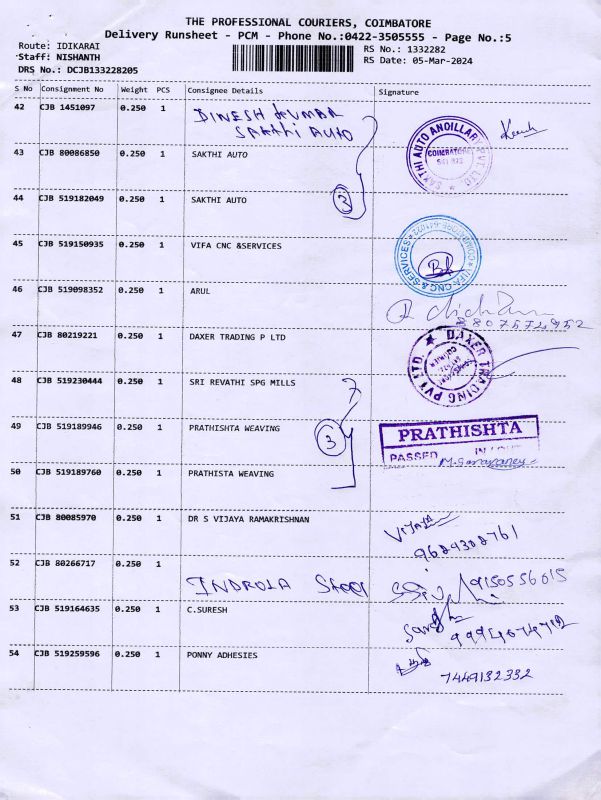 THE PROFESSIONAL COURIERS, COIMBATORE
Delivery Runsheet - PCM - Phone No.:0422-3505555 - Page No.:5
Route: IDIKARAI RS No.: 1332282
Staff: NISHANTH RS Date: 05-Mar-2024
DRS No.: DCJB133228205
S No Consignment No Weight PCS Consignee Details Signature
42 CJB 1451097 0.250 1 DINESH KUMAR
SAKTHI AUTO
43 CJB 80086850 0.250 1 SAKTHI AUTO
SAKTHI AUTO ANCILLARY PVT LTD
COIMBATORE
44 CJB 519182049 0.250 1 SAKTHI AUTO
3
45 CJB 519150935 0.250 1 VIFA CNC &SERVICES
VIFA CNC & SERVICES
46 CJB 519098352 0.250 1 ARUL
8807574952
47 CJB 80219221 0.250 1 DAXER TRADING P LTD
DAXER TRADING PVT LTD.
48 CJB 519230444 0.250 1 SRI REVATHI SPG MILLS
7
49 CJB 519189946 0.250 1 PRATHISHTA WEAVING
3
PRATHISHTA
PASSED
50 CJB 519189760 0.250 1 PRATHISTA WEAVING
51 CJB 80085970 0.250 1 DR S VIJAYA RAMAKRISHNAN
VIJAYA
9629302761
52 CJB 80266717 0.250 1
Steel 9150556615
53 CJB 519164635 0.250 1 C.SURESH
54 CJB 519259596 0.250 1 PONNY ADHESIES
7449132332